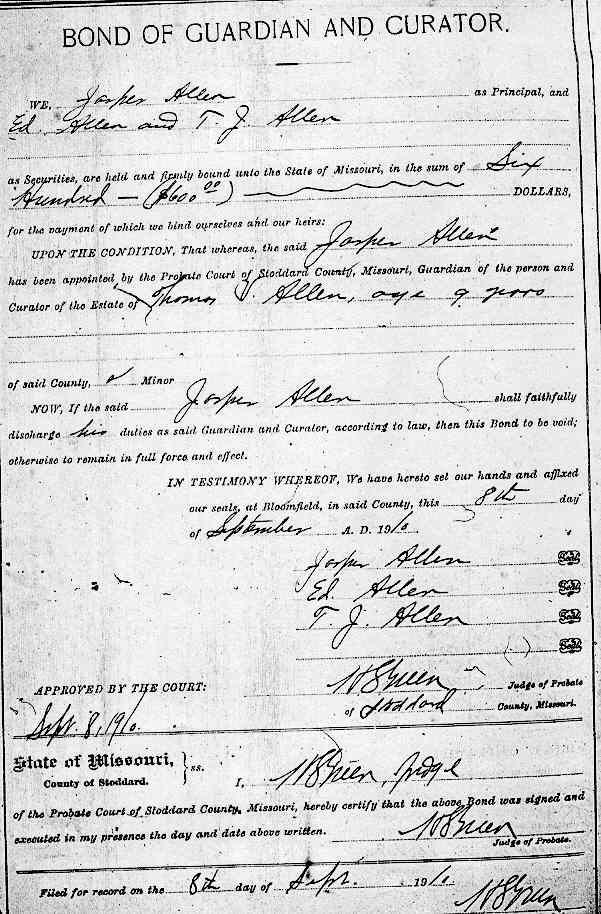 BOND OF GUARDIAN AND CURATOR.
WE, Jasper Allen as Principal, and
Ed. Allen and T. J. Allen
as Securities, are held and firmly bound unto the State of Missouri, in the sum of Six
Hundred — ($600.00) DOLLARS,
for the payment of which we bind ourselves and our heirs:
UPON THE CONDITION, That whereas, the said Jasper Allen
has been appointed by the Probate Court of Stoddard County, Missouri, Guardian of the person and
Curator of the Estate of Thomas J. Allen, age 9 years
of said County, a Minor
NOW, If the said Jasper Allen shall faithfully
discharge his duties as said Guardian and Curator, according to law, then this Bond to be void;
otherwise to remain in full force and effect.
IN TESTIMONY WHEREOF, We have hereto set our hands and affixed
our seals, at Bloomfield, in said County, this 8th day
of September A. D. 1910
Jasper Allen Seal
Ed. Allen Seal
T. J. Allen Seal
Seal
APPROVED BY THE COURT: Green Judge of Probate
of Stoddard County, Missouri.
Sept. 8, 1910.
State of Missouri,
County of Stoddard. ss. I, Green, Judge
of the Probate Court of Stoddard County, Missouri, hereby certify that the above Bond was signed and
executed in my presence the day and date above written. Green
Judge of Probate.
Filed for record on the 8th day of Sept. 1910 Green